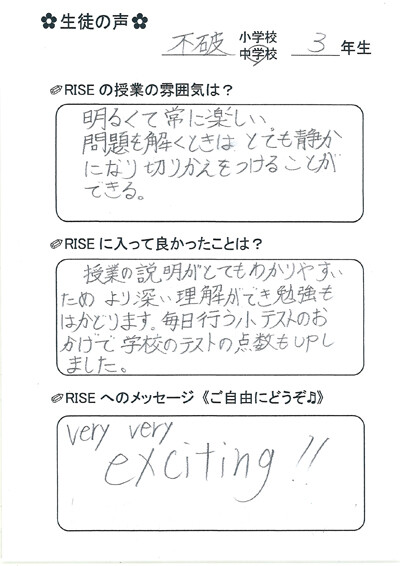 ✿生徒の声✿
不破 小学校 中学校 3 年生
RISEの授業の雰囲気は？
明るくて常に楽しい。
問題を解くときは とても静か
になり切りかえをつけることが
できる。
RISEに入って良かったことは？
授業の説明がとてもわかりやすい
ため より深い理解ができ勉強も
はかどります。毎日行う小テストのお
かげで 学校のテストの点数もUPし
ました。
RISEへのメッセージ《ご自由にどうぞ♫》
very very
exciting !!